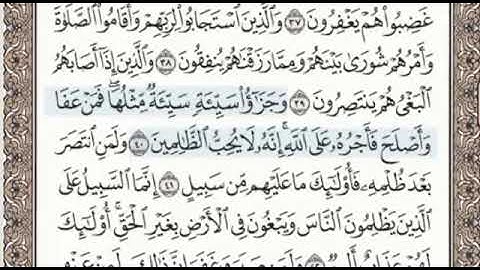 غَضِبُوا۟ هُمْ يَغْفِرُونَ ۝٣٧ وَٱلَّذِينَ ٱسْتَجَابُوا۟ لِرَبِّهِمْ وَأَقَامُوا۟ ٱلصَّلَوٰةَ
وَأَمْرُهُمْ شُورَىٰ بَيْنَهُمْ وَمِمَّا رَزَقْنَٰهُمْ يُنفِقُونَ ۝٣٨ وَٱلَّذِينَ إِذَآ أَصَابَهُمُ
ٱلْبَغْىُ هُمْ يَنتَصِرُونَ ۝٣٩ وَجَزَٰٓؤُا۟ سَيِّئَةٍ سَيِّئَةٌ مِّثْلُهَا ۖ فَمَنْ عَفَا
وَأَصْلَحَ فَأَجْرُهُۥ عَلَى ٱللَّهِ ۚ إِنَّهُۥ لَا يُحِبُّ ٱلظَّٰلِمِينَ ۝٤٠ وَلَمَنِ ٱنتَصَرَ
بَعْدَ ظُلْمِهِۦ فَأُو۟لَٰٓئِكَ مَا عَلَيْهِم مِّن سَبِيلٍ ۝٤١ إِنَّمَا ٱلسَّبِيلُ عَلَى
ٱلَّذِينَ يَظْلِمُونَ ٱلنَّاسَ وَيَبْغُونَ فِى ٱلْأَرْضِ بِغَيْرِ ٱلْحَقِّ ۚ أُو۟لَٰٓئِكَ